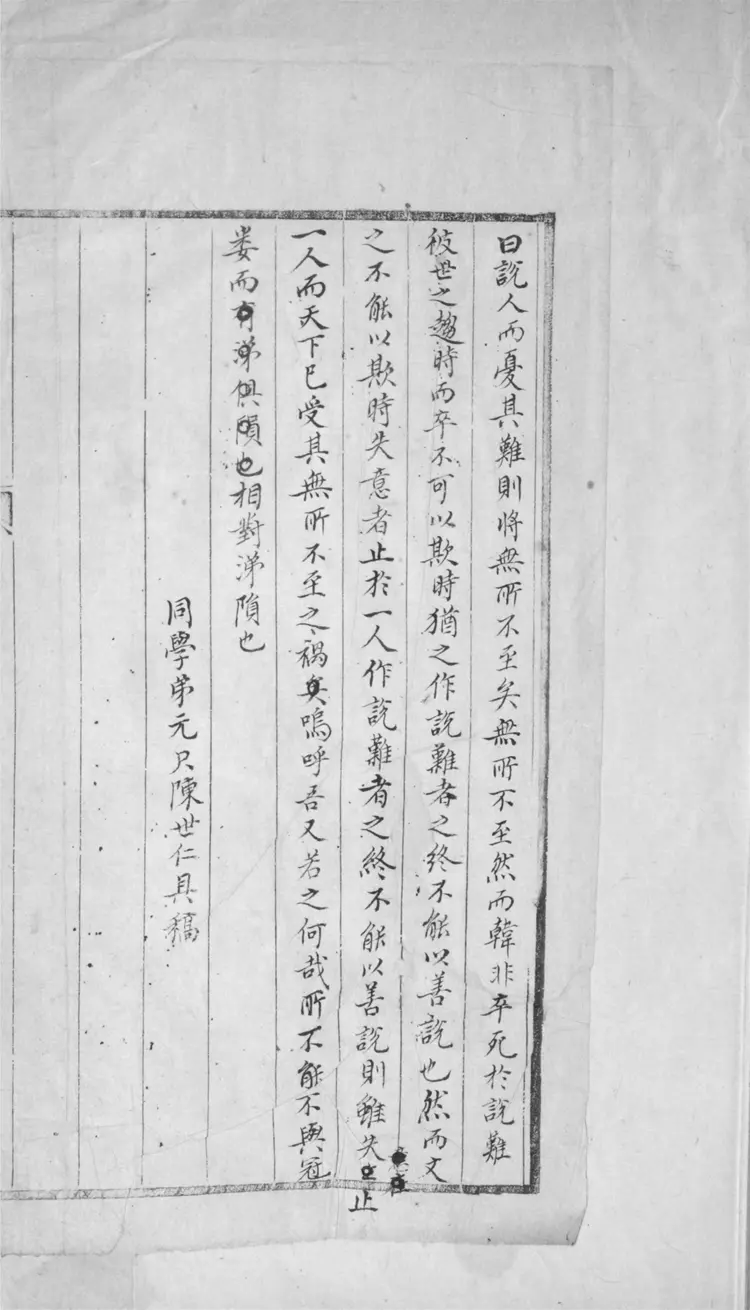 曰說人而憂其難則將無所不至矣無所不至然而韓非卒死於說難
彼世之趨時而卒不可以欺時猶之作說難者之終不能以善說也然而文
之不能以欺時失意者止於一人作說難者之終不能以善說則雖失
止
一人而天下已受其無所不至之禍矣嗚呼吾又若之何哉所不能不與冠
婁而有涕俱隕也相對涕隕也
同學弟元尺陳世仁具稿